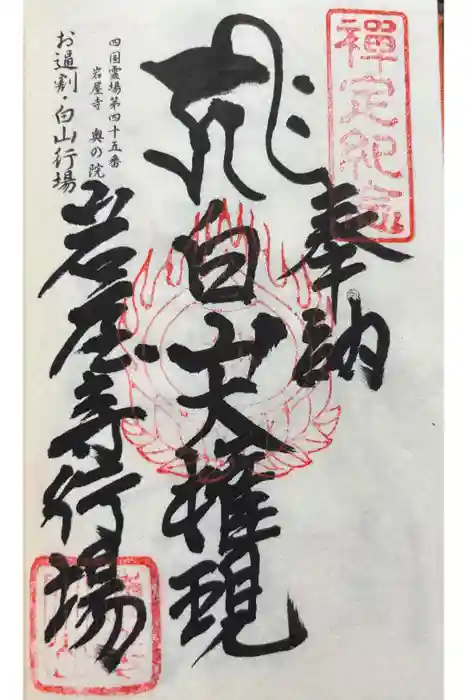 禪定紀念
奉納
白山大権現
四国霊場第四十五番
岩屋寺 奥の院
お逼割・白山行場
岩屋寺行場